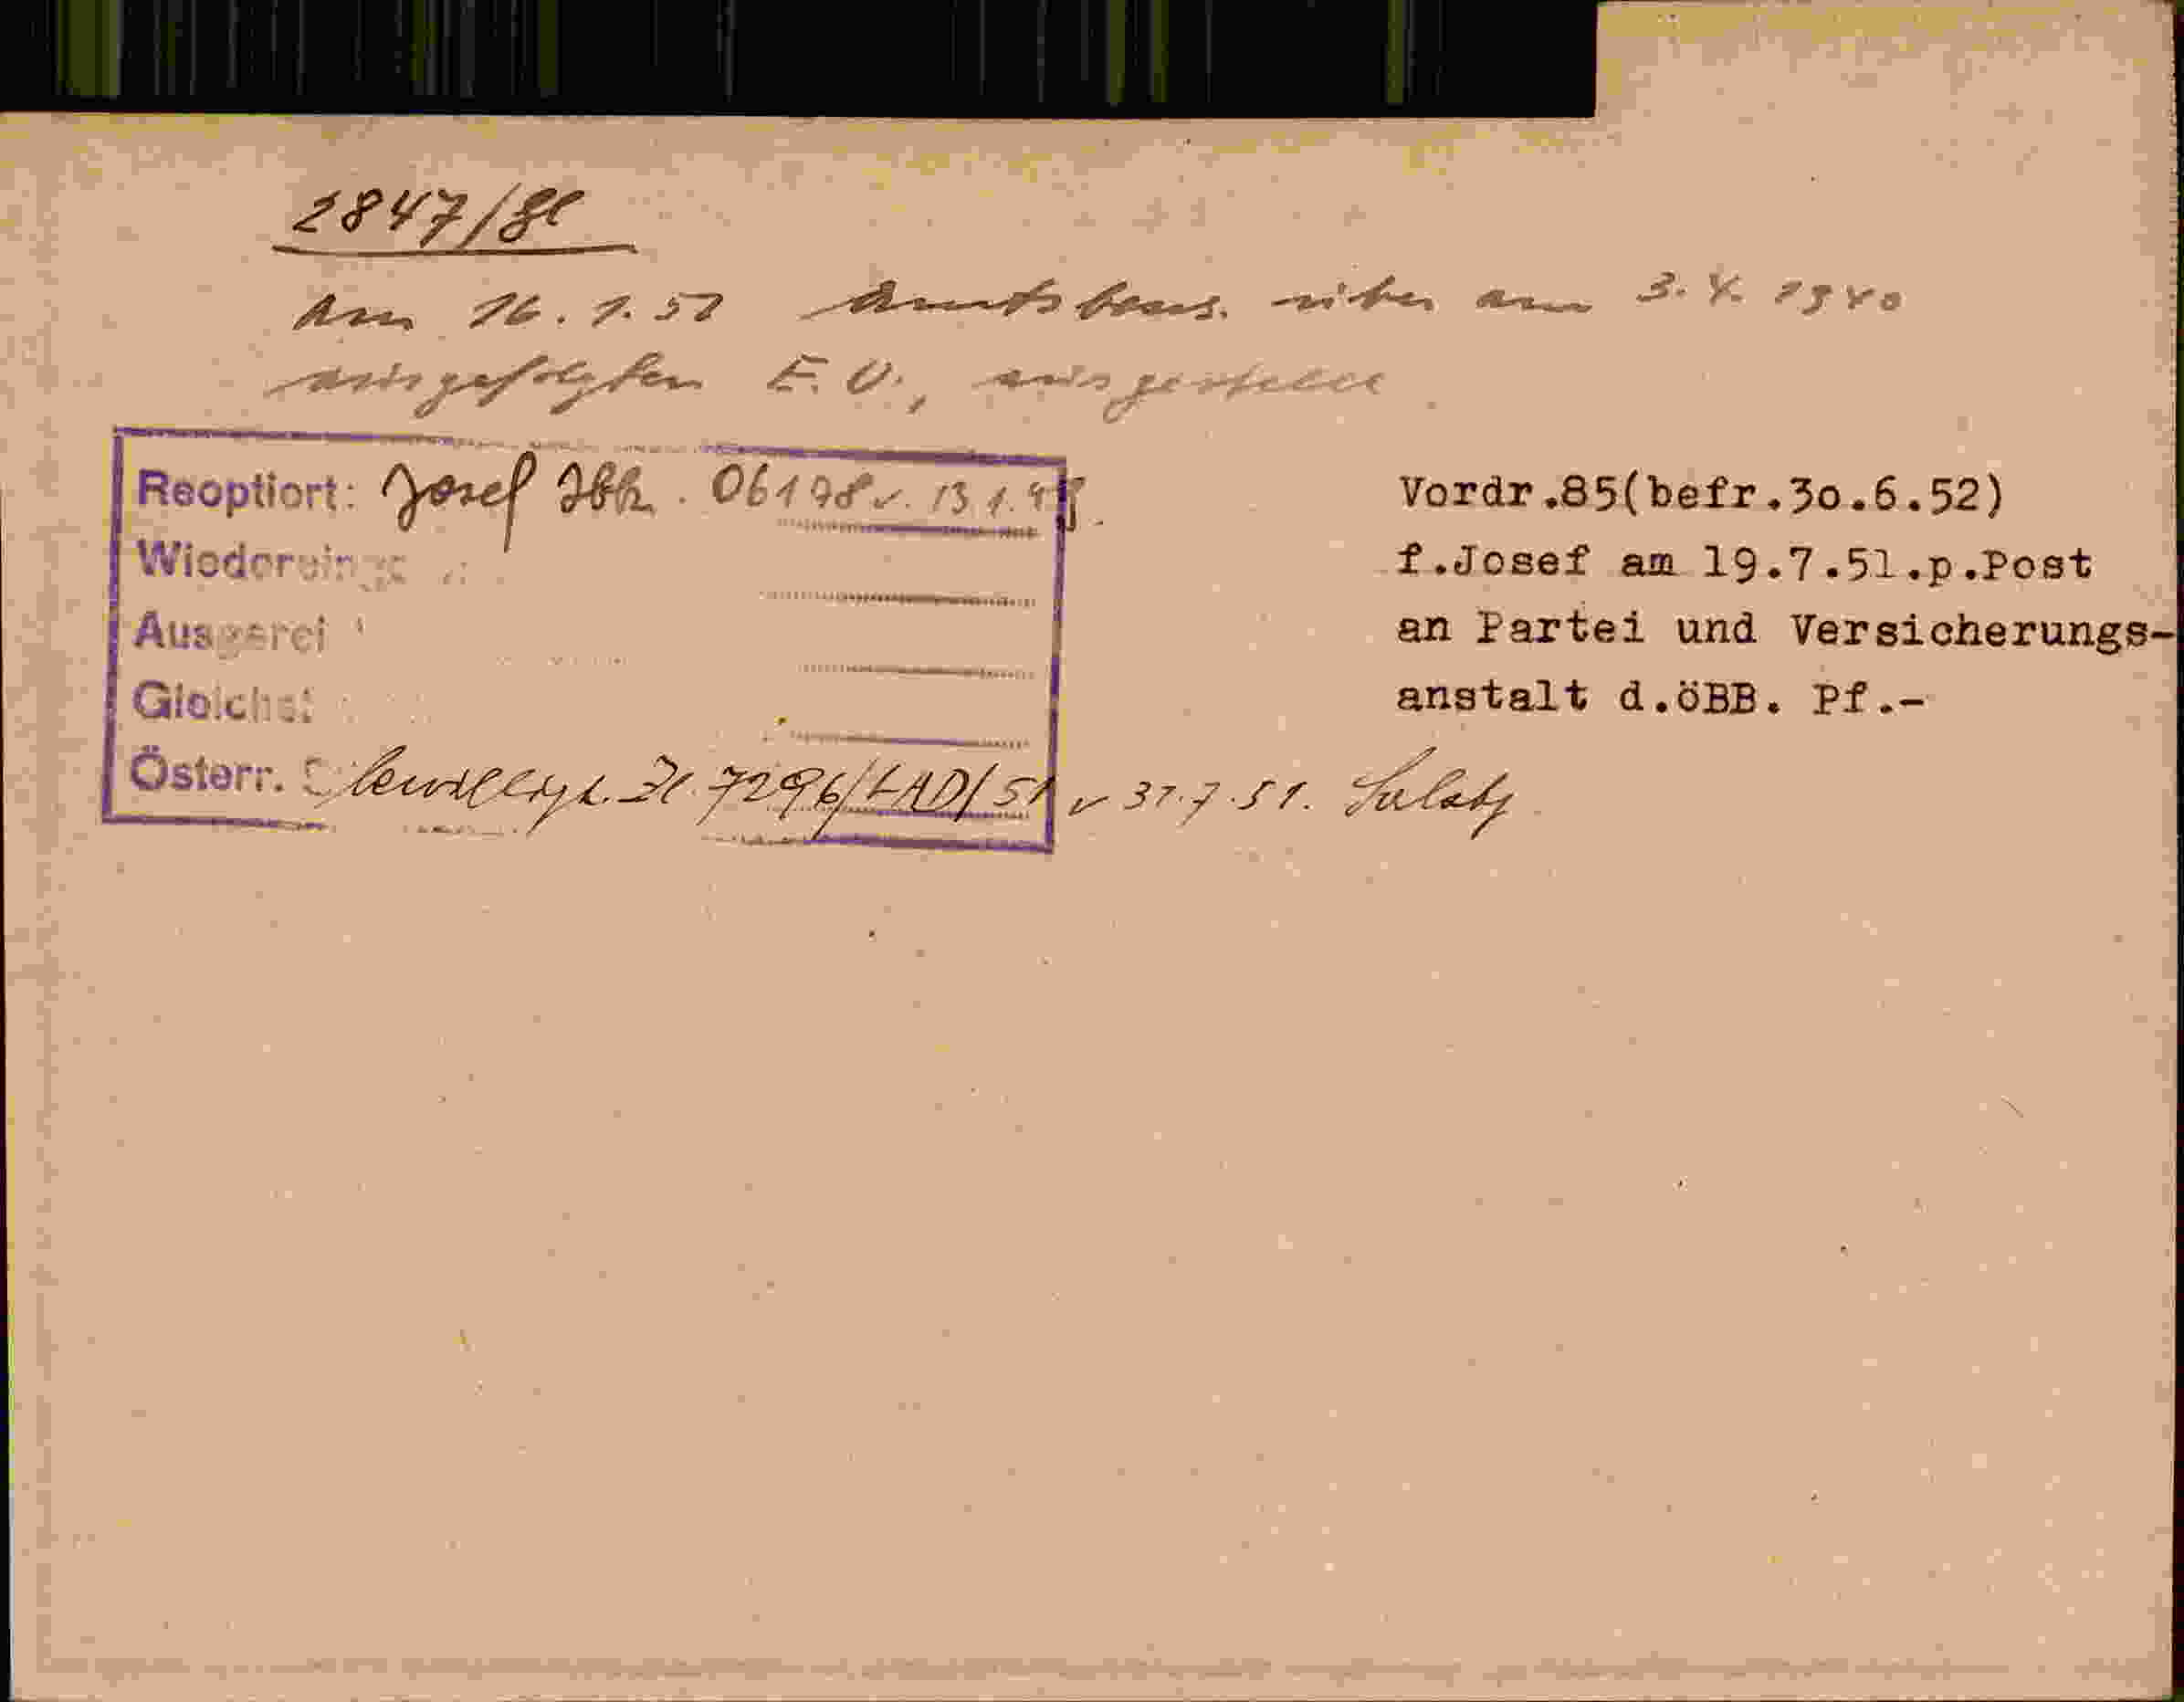 2847/Gl
Am 16.1.51 Amtsbew. über am 3.4.1940
ausgefolgten E.U., ausgestellt
Reoptiert: Josef Ibk. 06178 v. 13.1.49.
Wiedereinge
Ausgerei
Gleichst
Österr. bewilligt. Zl. 7296/LAD/51 v 31.7.51. Salzbg
Vordr.85(befr.30.6.52)
f.Josef am 19.7.51.p.Post
an Partei und Versicherungs-
anstalt d.öBB. Pf.-